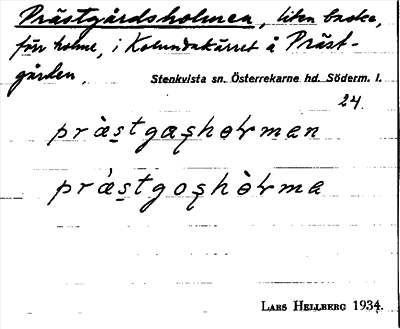 Prästgårdsholmen, liten backe,
förr holme, i Kolundakärret å Präst-
gården.
Stenkvista sn. Österrekarne hd. Söderm. l.
24.
LARS HELLBERG 1934.